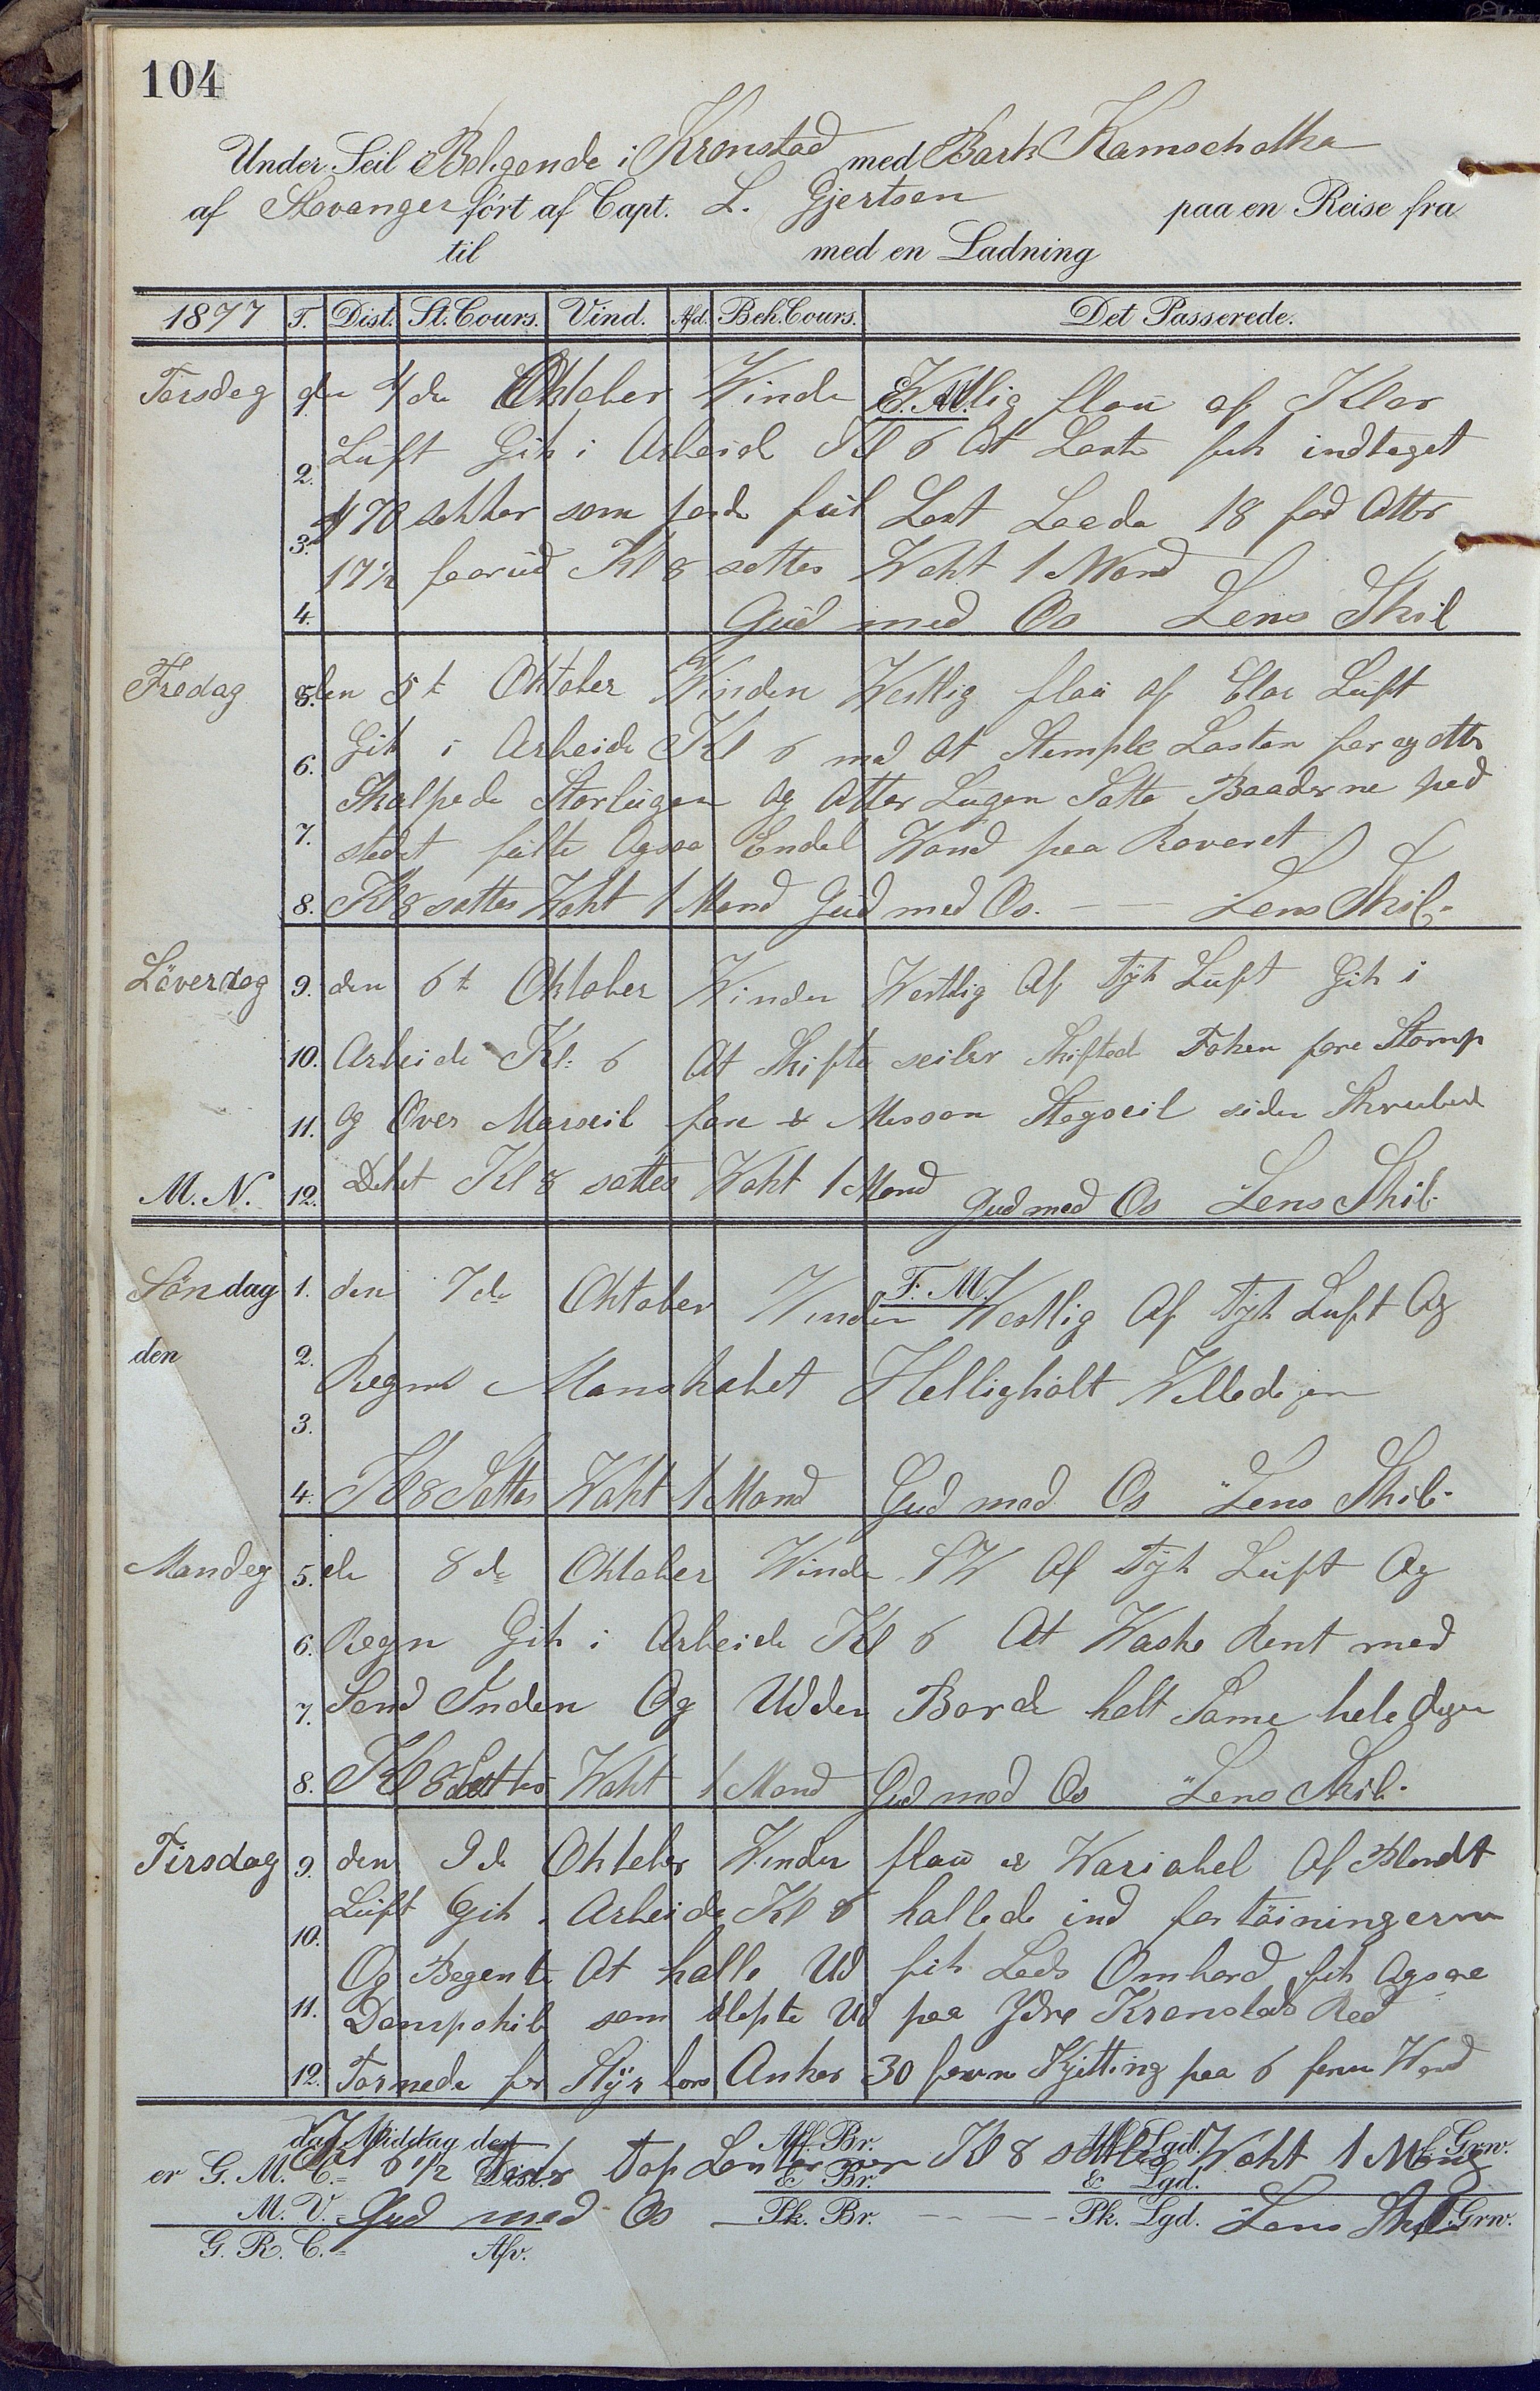 104
Under Seil Beligende i Kronstad med Bark Kamschatka
af Stavanger ført af Capt. L. Gjertsen paa en Reise fra
til med en Ladning
1877 T. Dist. St. Cours. Vind. Afd. Beh. Cours. Det Passerede.
E. M.
Torsdag den 4de Oktober Winde Westlig flau af Klar
Luft Gik i Arbeid Kl 6 At Laste fik indtaget
470 sekker som full Last 18 fod Atter
17 1/2 foorud Kl 8 sattes Wakt 1 Mand
Gud med Os Lens Skib
Fredag den 5t Oktober Winden Westlig flau af Clar Luft
Gik i Arbeide Kl 6 med at Stemple Lasten for og atter
Skalpede Storlugen og Atter Lugen Satte Baaderne paa
stedet Ogsaa Endel Wand paa Roveret
Kl 8 sattes Wakt 1 Mand Gud med Os. Lens Skib
Löverdag den 6t Oktober Winden Westlig Af Tyk Luft Gik i
Arbeide Kl. 6 At Skifte seiler Skifted Foken fore Stomp
og Over Marseil fore & Mesoan Stagseil siden
Deket Kl 8 sattes Wakt 1 Mand Gud med Os Lens Skib
M. N.
F. M.
Söndag den 7de Oktober Winden Westlig Af Tyk Luft Og
den Regn Manskabet Helligholt
Kl 8 Sattes Wakt 1 Mand Gud med Os Lens Skib
Mandag de 8de Oktober Winde SW Af Tyk Luft Og
Regn Gik i Arbeide Kl 6 At Waske Rent med
Sand Inden Og Udden Borde halt Same hele dagen
Kl 8 Sattes Wakt 1 Mand Gud med Os Lens Skib
Tirsdag den 9de Oktober Winden flau & Wariabel Af Blandt
Luft Gik i Arbeide Kl 6 hallede ind for töiningerne
Og Begente At halle Ud fik Lods Ombord fik Ogsaa
Dampskib som slepte Ud paa Ydre Kronstads Red
Tornede for Styrbors Anker 30 favne Kjetting paa 6 favn Wand
dag Middag den Aff. Br. Aff. Lgd. Grw.
er G. M. C.= Dist. & Br. & Lgd.
Kl 6 1/2 Top Lanternen Kl 8 sattes Wakt 1 Mand
M. V.= Pk. Br. Pk. Lgd. Grw.
Gud med Os Lens Skib
G. R. C.= Afv.